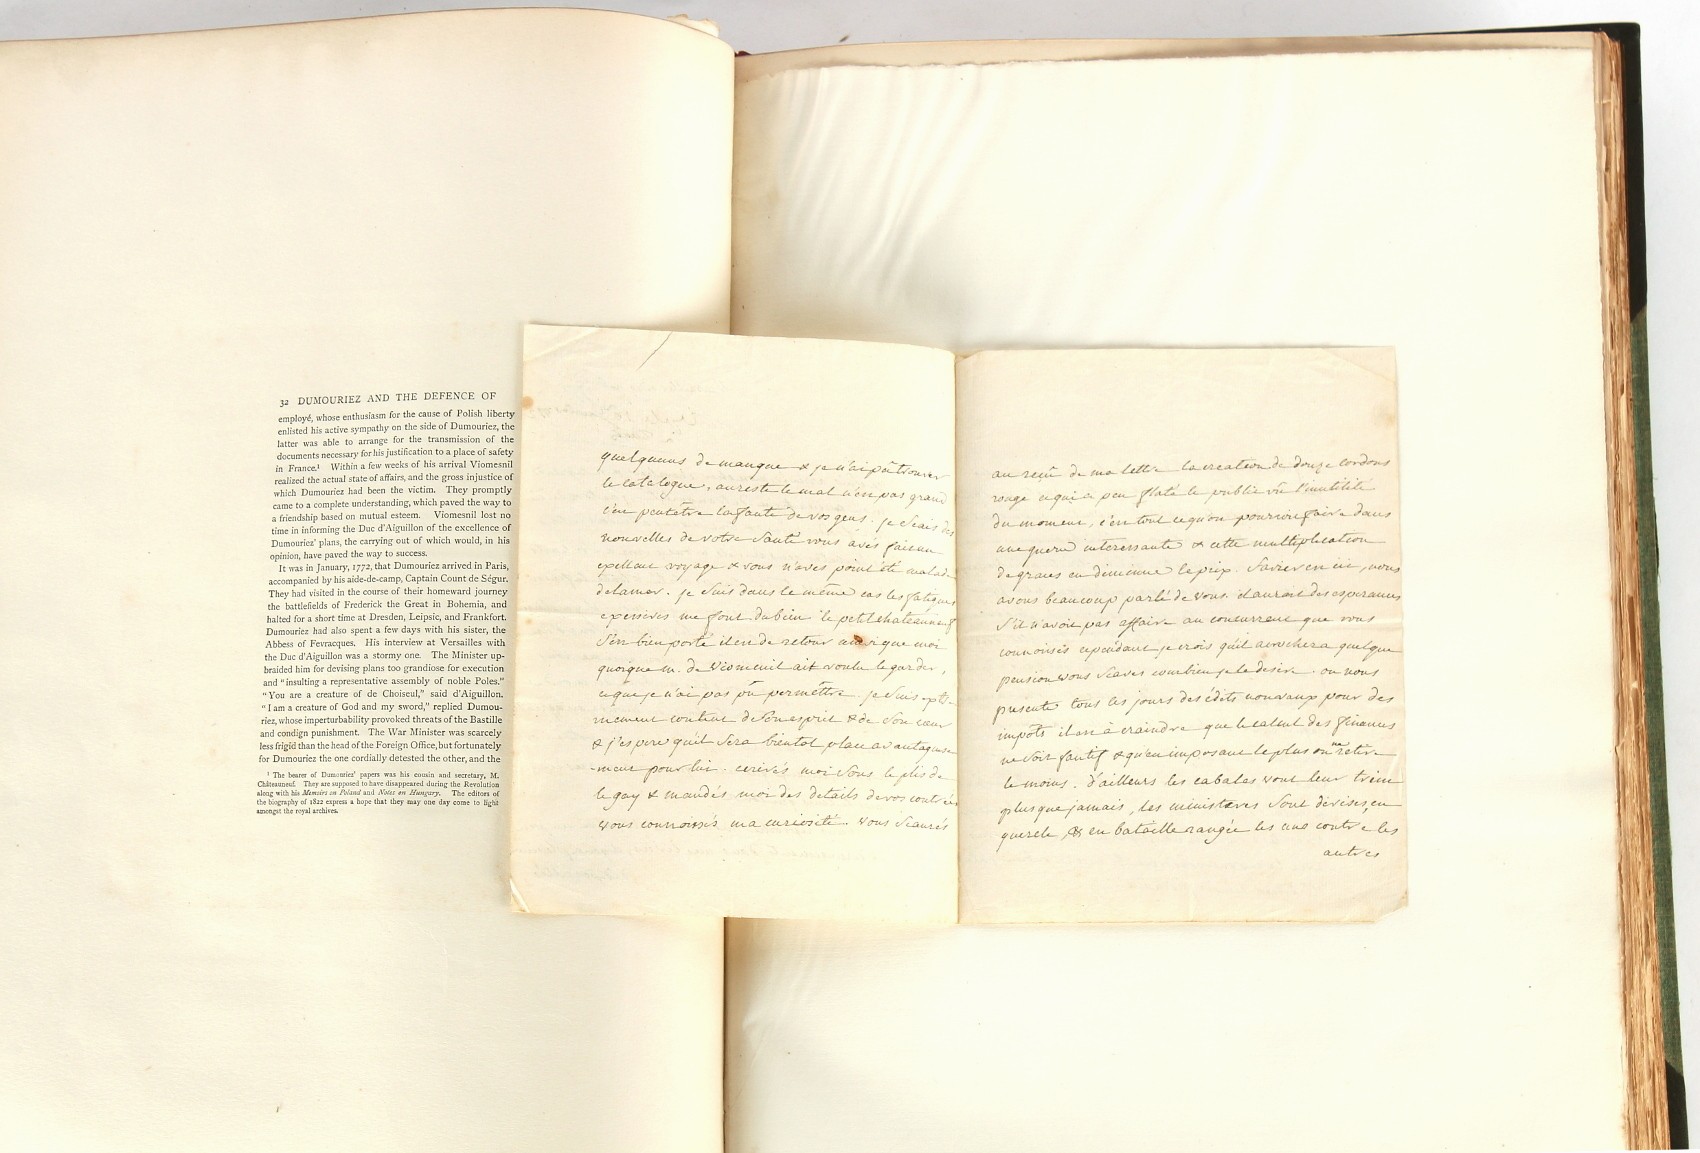 32 DUMOURIEZ AND THE DEFENCE OF
employé, whose enthusiasm for the cause of Polish liberty
enlisted his active sympathy on the side of Dumouriez, the
latter was able to arrange for the transmission of the
documents necessary for his justification to a place of safety
in France.¹ Within a few weeks of his arrival Viomesnil
realized the actual state of affairs, and the gross injustice of
which Dumouriez had been the victim. They promptly
came to a complete understanding, which paved the way to
a friendship based on mutual esteem. Viomesnil lost no
time in informing the Duc d'Aiguillon of the excellence of
Dumouriez' plans, the carrying out of which would, in his
opinion, have paved the way to success.
It was in January, 1772, that Dumouriez arrived in Paris,
accompanied by his aide-de-camp, Captain Count de Ségur.
They had visited in the course of their homeward journey
the battlefields of Frederick the Great in Bohemia, and
halted for a short time at Dresden, Leipsic, and Frankfort.
Dumouriez had also spent a few days with his sister, the
Abbess of Fevracques. His interview at Versailles with
the Duc d'Aiguillon was a stormy one. The Minister up-
braided him for devising plans too grandiose for execution
and "insulting a representative assembly of noble Poles."
"You are a creature of de Choiseul," said d'Aiguillon.
"I am a creature of God and my sword," replied Dumou-
riez, whose imperturbability provoked threats of the Bastille
and condign punishment. The War Minister was scarcely
less frigid than the head of the Foreign Office, but fortunately
for Dumouriez the one cordially detested the other, and the
¹ The bearer of Dumouriez' papers was his cousin and secretary, M.
Châteauneuf. They are supposed to have disappeared during the Revolution
along with his Memoirs on Poland and Notes on Hungary. The editors of
the biography of 1822 express a hope that they may one day come to light
amongst the royal archives.
quelquuns de manque & je n'ai pû trouver
le catalogue, au reste le mal n'en pas grand
c'en peutetre la faute de vos gens. je scais des
nouvelles de votre santé vous avés fait un
exellent voyage & vous n'aves point été malade
de la mer. je suis dans le même cas les fatigues
excessives me font du bien le petit chateauneuf
s'en bien porté il en de retour ainsi que moi
quoique m. de viomenil ait voulu le garder,
ce que je n'ai pas pû permettre. je suis extre-
mement content de son esprit & de son cœur
& j'espere qu'il sera bientot placé avantageuse
-ment pour lui. ecrivés moi vous le plus
le gay & mandés moi des details de vos contrées
vous connoissés ma curiosité. vous scaurés
au reçu de ma lettre la creation de douze cordons
rouge ce qui a peu flaté le public vû l'inutilité
du moment, c'en tout ce qu'on pourroit faire dans
une guerre interessante & cette multiplication
de graces en diminue le prix. Favier en ici, nous
avons beaucoup parlé de vous. il auroit des esperances
s'il n'avoit pas affaire au concurrent que vous
connoissés cependant je crois qu'il accrochera quelque
pension vous scaves combien je le desire. on nous
presente tous les jours des édits nouveaux pour des
impôts il en à craindre que le calcul des finances
ne soit fautif & qu'en imposant le plus on ne retire
le moins. d'ailleurs les cabales vont leur train
plus que jamais, les ministeres sont divisés, en
querele, & en bataille rangée les uns contre les
autres